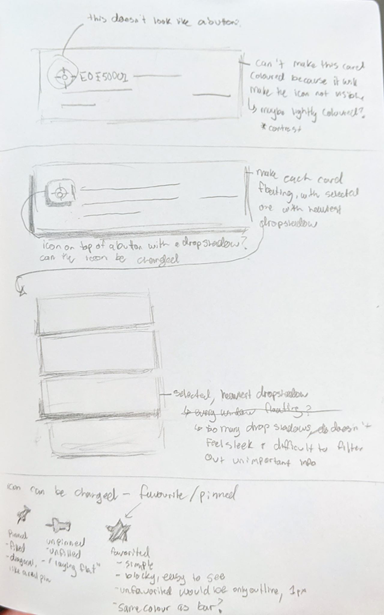 this doesn't look like a button.
E0E50002
can't make this card
coloured because it will
make the icon not visible.
↳ maybe lightly coloured?
* contrast
make each card
floating, with selected
one with heaviest
dropshadow
icon on top of a button with a dropshadow?
can the icon be changed
selected, heaviest dropshadow
↳ too many drop shadows, doesn't
feel sleek & difficult to filter
out unimportant info
icon can be changed - favourite/pinned
pinned
- filled
- diagonal,
unpinned
- unfilled
- "laying flat"
favorited
- simple
- blocky, easy to see
- unfavorited would be only outline, 1px
- same colour as bar?